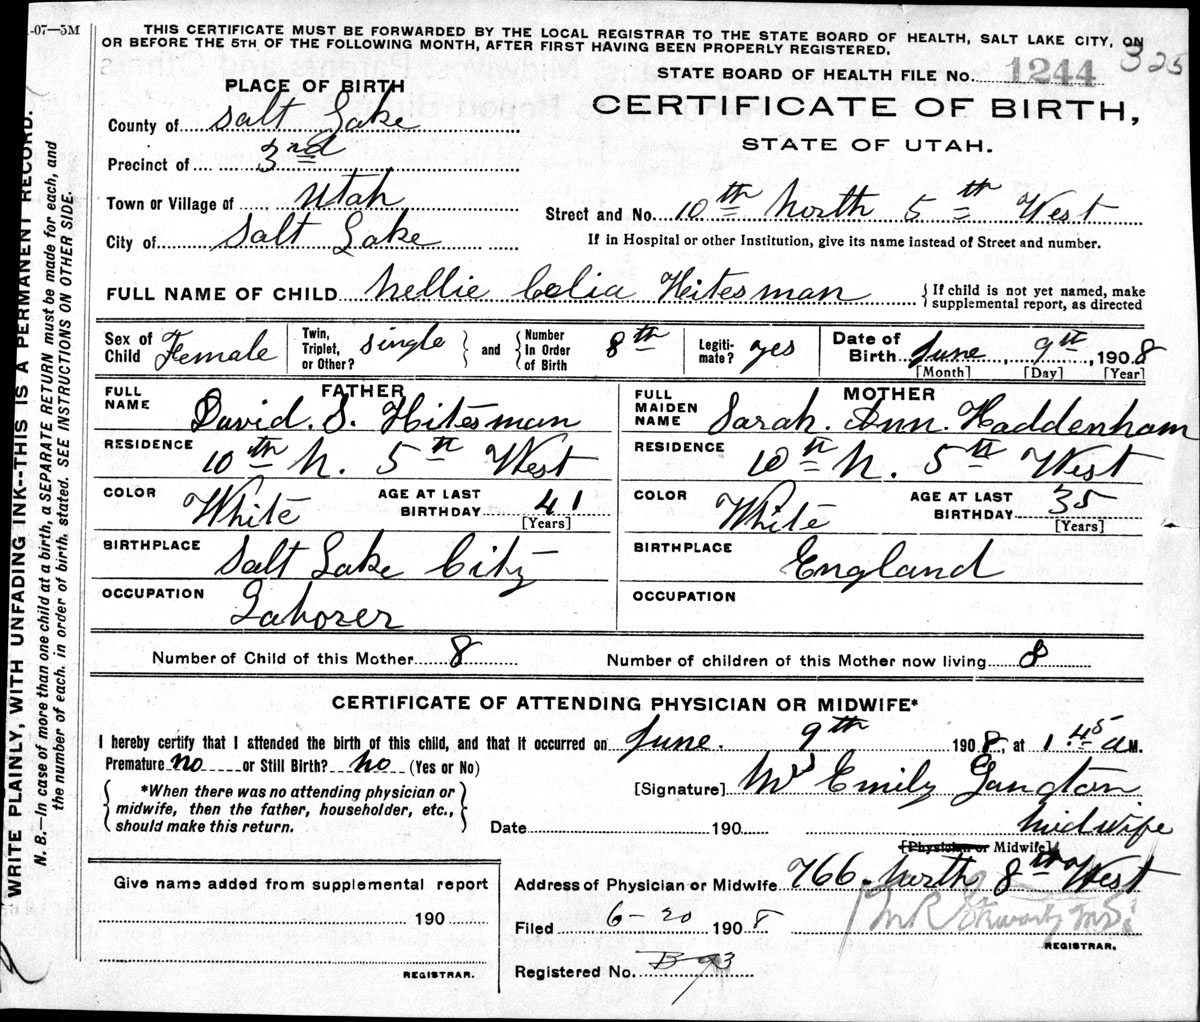 -07—5M
THIS CERTIFICATE MUST BE FORWARDED BY THE LOCAL REGISTRAR TO THE STATE BOARD OF HEALTH, SALT LAKE CITY, ON
OR BEFORE THE 5TH OF THE FOLLOWING MONTH, AFTER FIRST HAVING BEEN PROPERLY REGISTERED.
325
STATE BOARD OF HEALTH FILE No. 1244
PLACE OF BIRTH
CERTIFICATE OF BIRTH,
STATE OF UTAH.
County of Salt Lake
Precinct of 3rd
Town or Village of Utah
Street and No. 10th North 5th West
City of Salt Lake
If in Hospital or other Institution, give its name instead of Street and number.
FULL NAME OF CHILD Nellie Celia Hitesman { If child is not yet named, make supplemental report, as directed
Sex of Child Female
Twin, Triplet, or Other? single } and { Number in Order of Birth 8th
Legiti-mate? yes
Date of Birth June 9th, 1908
[Month] [Day] [Year]
FATHER
FULL NAME David. S. Hitesman
MOTHER
FULL MAIDEN NAME Sarah. Ann. Haddenham
RESIDENCE 10th N. 5th West
RESIDENCE 10th N. 5th West
COLOR White AGE AT LAST BIRTHDAY 41 [Years]
COLOR White AGE AT LAST BIRTHDAY 35 [Years]
BIRTHPLACE Salt Lake City
BIRTHPLACE England
OCCUPATION Laborer
OCCUPATION
Number of Child of this Mother 8
Number of children of this Mother now living 8
CERTIFICATE OF ATTENDING PHYSICIAN OR MIDWIFE*
I hereby certify that I attended the birth of this child, and that it occurred on June. 9th 1908, at 1.45 a M.
Premature no or Still Birth? no (Yes or No)
{ *When there was no attending physician or
midwife, then the father, householder, etc.,
should make this return. }
[Signature] Mrs Emily Langton
Date 190 midwife
[Physician or Midwife]
Address of Physician or Midwife 766. North 8th West
Filed 6-20 1908
REGISTRAR.
Registered No. B 93
Give name added from supplemental report
190
REGISTRAR.
WRITE PLAINLY, WITH UNFADING INK--THIS IS A PERMANENT RECORD.
N. B.—In case of more than one child at a birth, a SEPARATE RETURN must be made for each, and
the number of each, in order of birth, stated. SEE INSTRUCTIONS ON OTHER SIDE.